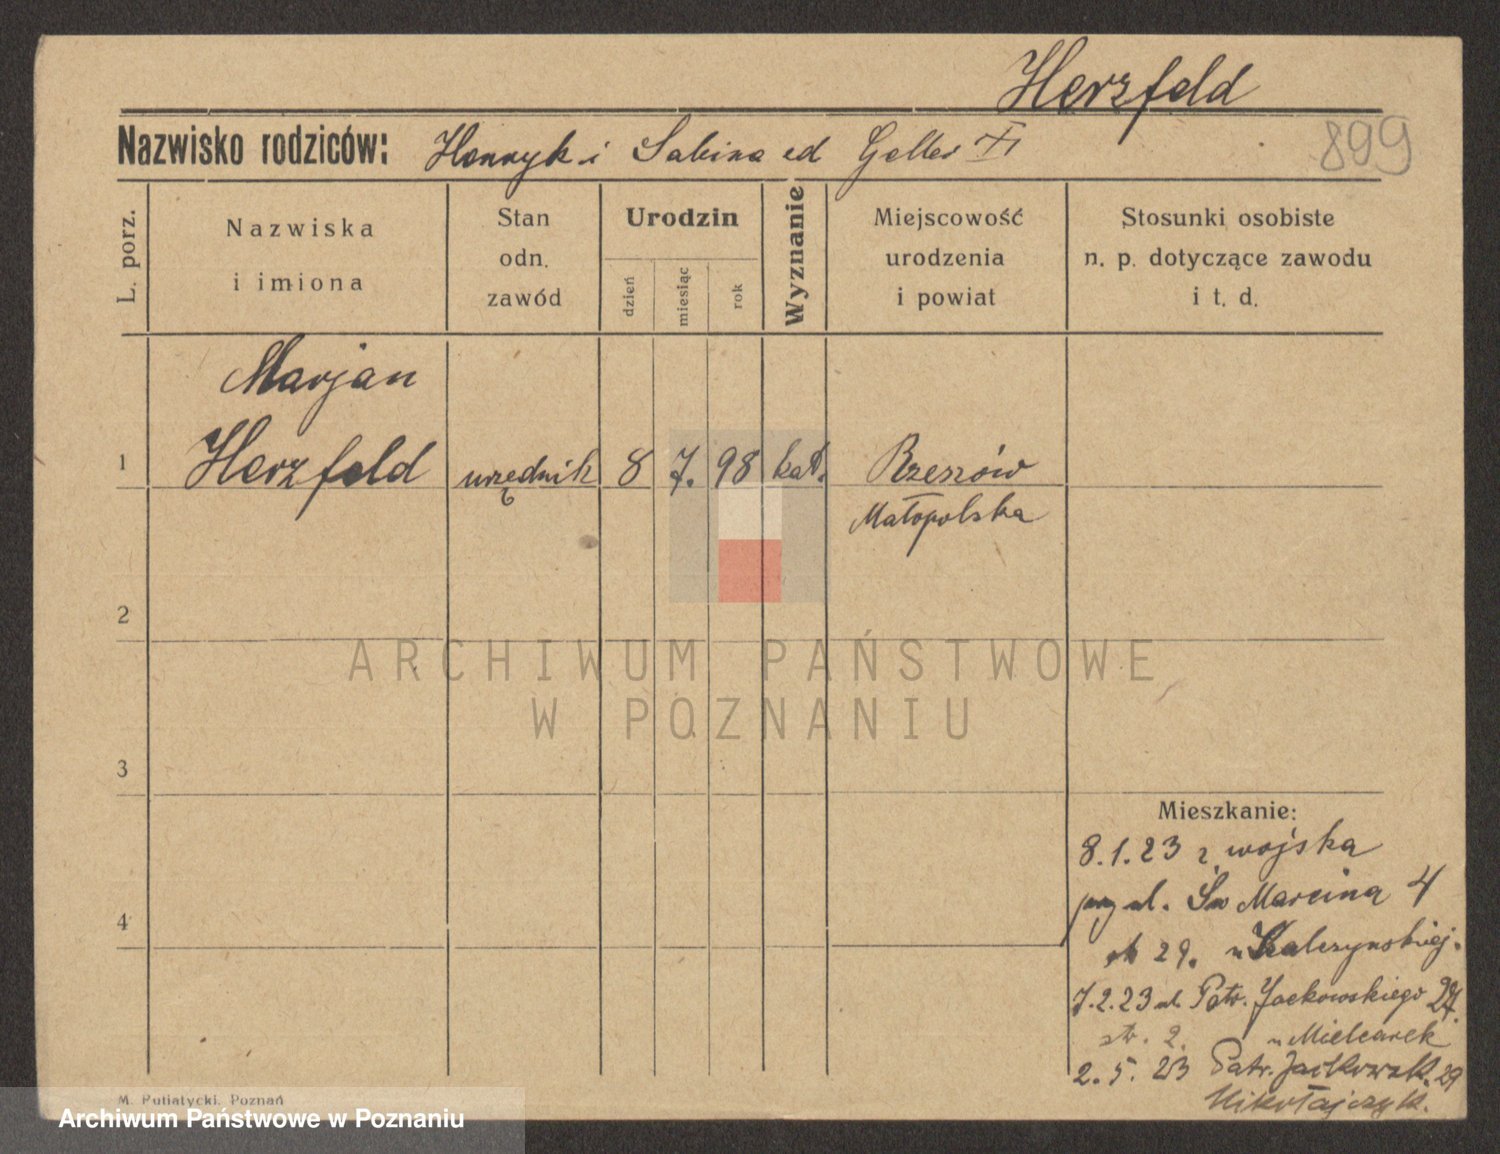 Herzfeld
Nazwisko rodziców: Henryk i Sabina ed Geller
899
L. porz.
Nazwiska
i imiona
Stan
odn.
zawód
Urodzin
dzień
miesiąc
rok
Wyznanie
Miejscowość
urodzenia
i powiat
Stosunki osobiste
n. p. dotyczące zawodu
i t. d.
Marjan
1 Herzfeld urzędnik 8 7. 98 kat. Rzeszów
Małopolska
2
3
4
ARCHIWUM PAŃSTWOWE
W POZNANIU
Mieszkanie:
8.1.23 z wojska
przy ul. Św Marcina 4
29. u
7.2.23 ul. Patr. Jackowskiego
str. 2. u Mielcarek
2. 5. 23 Patr. Jackowsk. 29
Mikołajczyk.
M. Putiatycki, Poznań
Archiwum Państwowe w Poznaniu